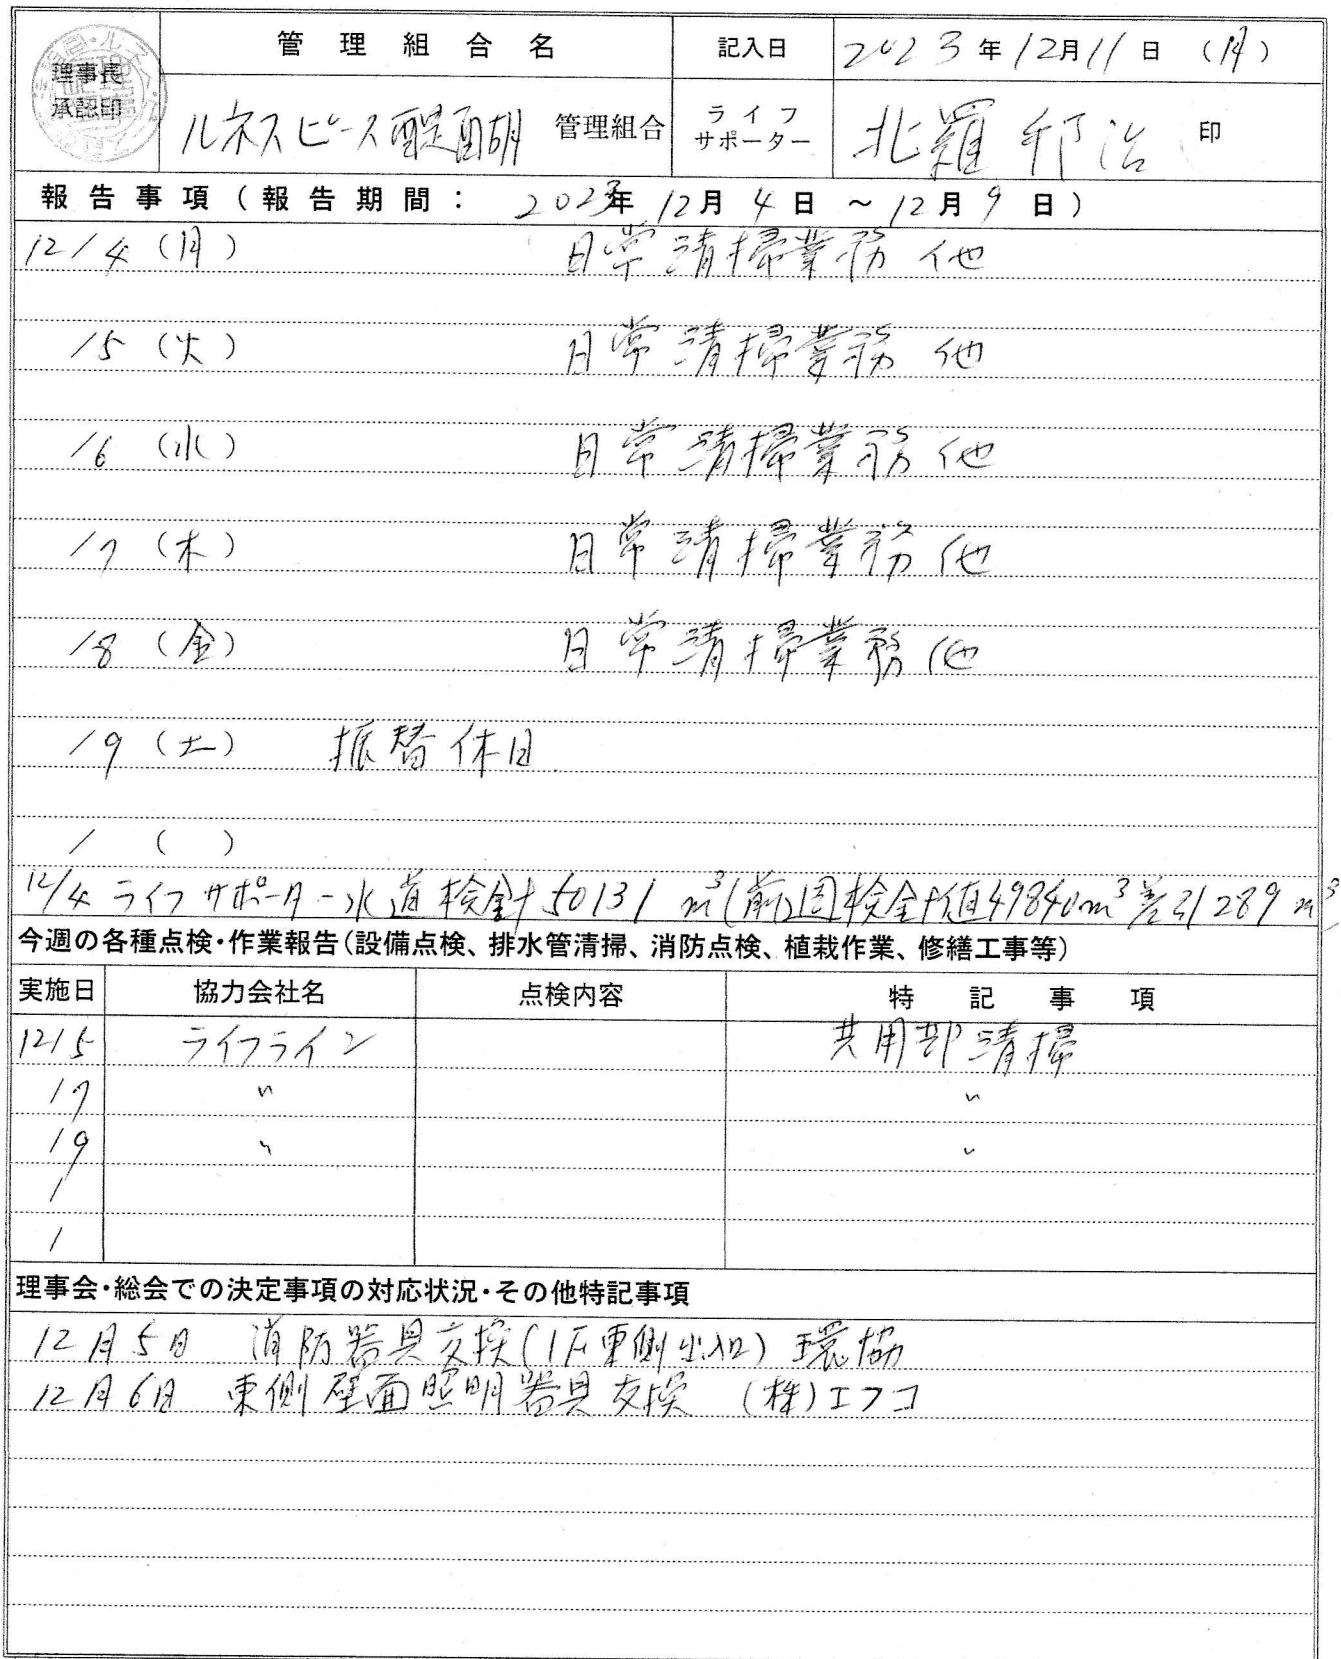 理事長
承認印
管理組合名
記入日
2023年12月11日(月)
ルネスピース醍醐 管理組合
ライフ
サポーター
北羅 邦治 印
報告事項(報告期間: 2023年12月4日 ~12月9日)
12/4(月) 日常清掃業務 他
/5(火) 日常清掃業務 他
/6(水) 日常清掃業務 他
/7(木) 日常清掃業務 他
/8(金) 日常清掃業務 他
/9(土) 振替休日
/ ( )
12/4 ライフサポーター水道検針50131m³(前回検針値49840m³差引289m³)
今週の各種点検・作業報告(設備点検、排水管清掃、消防点検、植栽作業、修繕工事等)
実施日 協力会社名 点検内容 特記事項
12/5 ライフライン 共用部清掃
/7 〃 〃
/9 〃 〃
/
/
理事会・総会での決定事項の対応状況・その他特記事項
12月5日 消防器具交換(1F東側出入口) 環協
12月6日 東側壁面照明器具交換 (株)エフコ